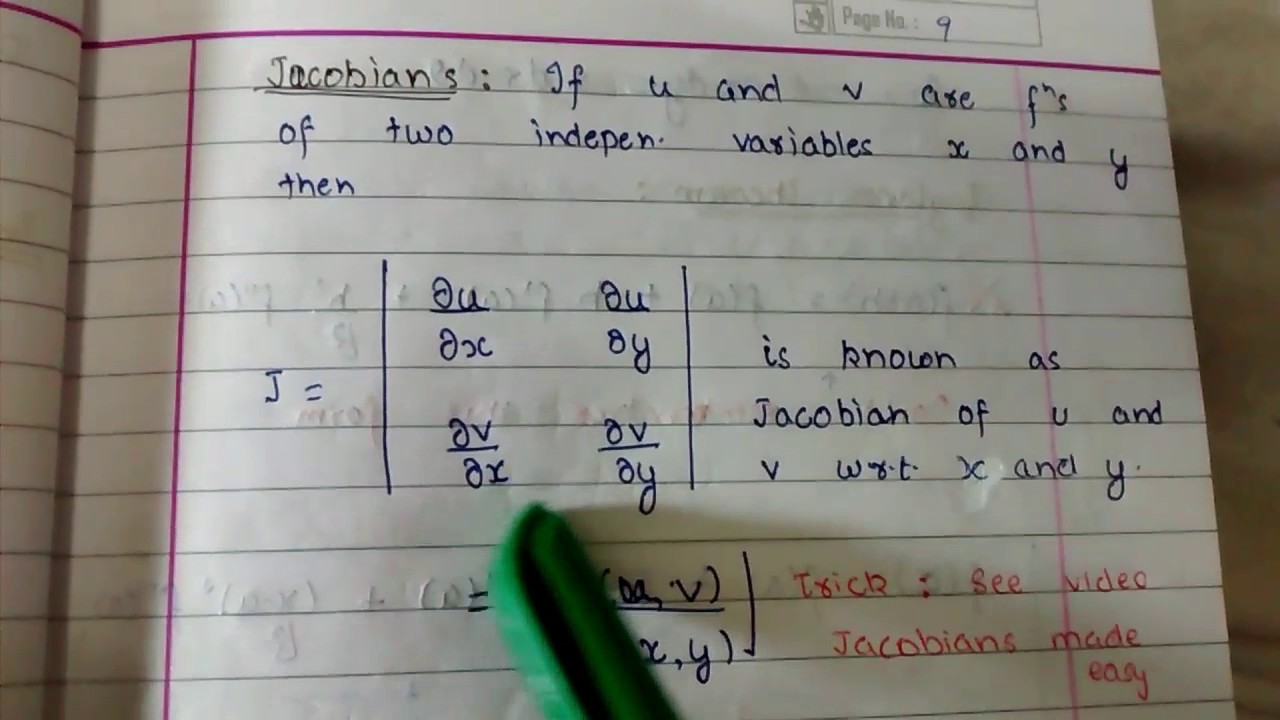 Page No.: 9
Jacobian's: If u and v are fⁿs
of two indepen. variables x and y
then
∂u ∂u
∂x ∂y is known as
J = Jacobian of u and
∂v ∂v
∂x ∂y v w.r.t. x and y.
= (u, v) Trick: See video
x, y) Jacobians made
easy